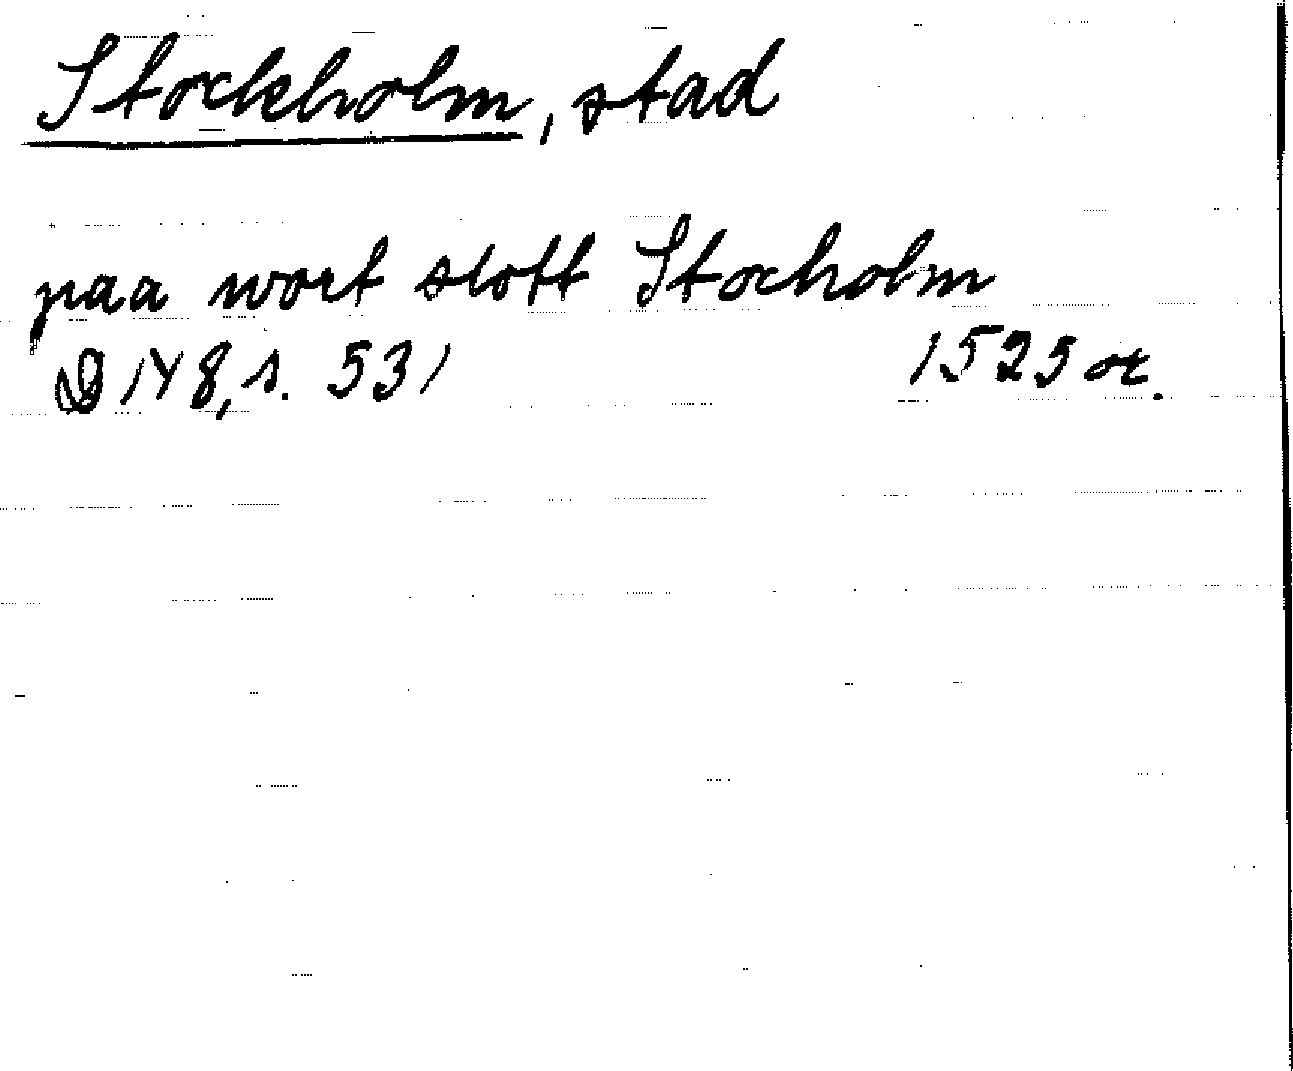 Stockholm, stad
paa wort slott Stocholm
D 148, s. 531 1525 or.